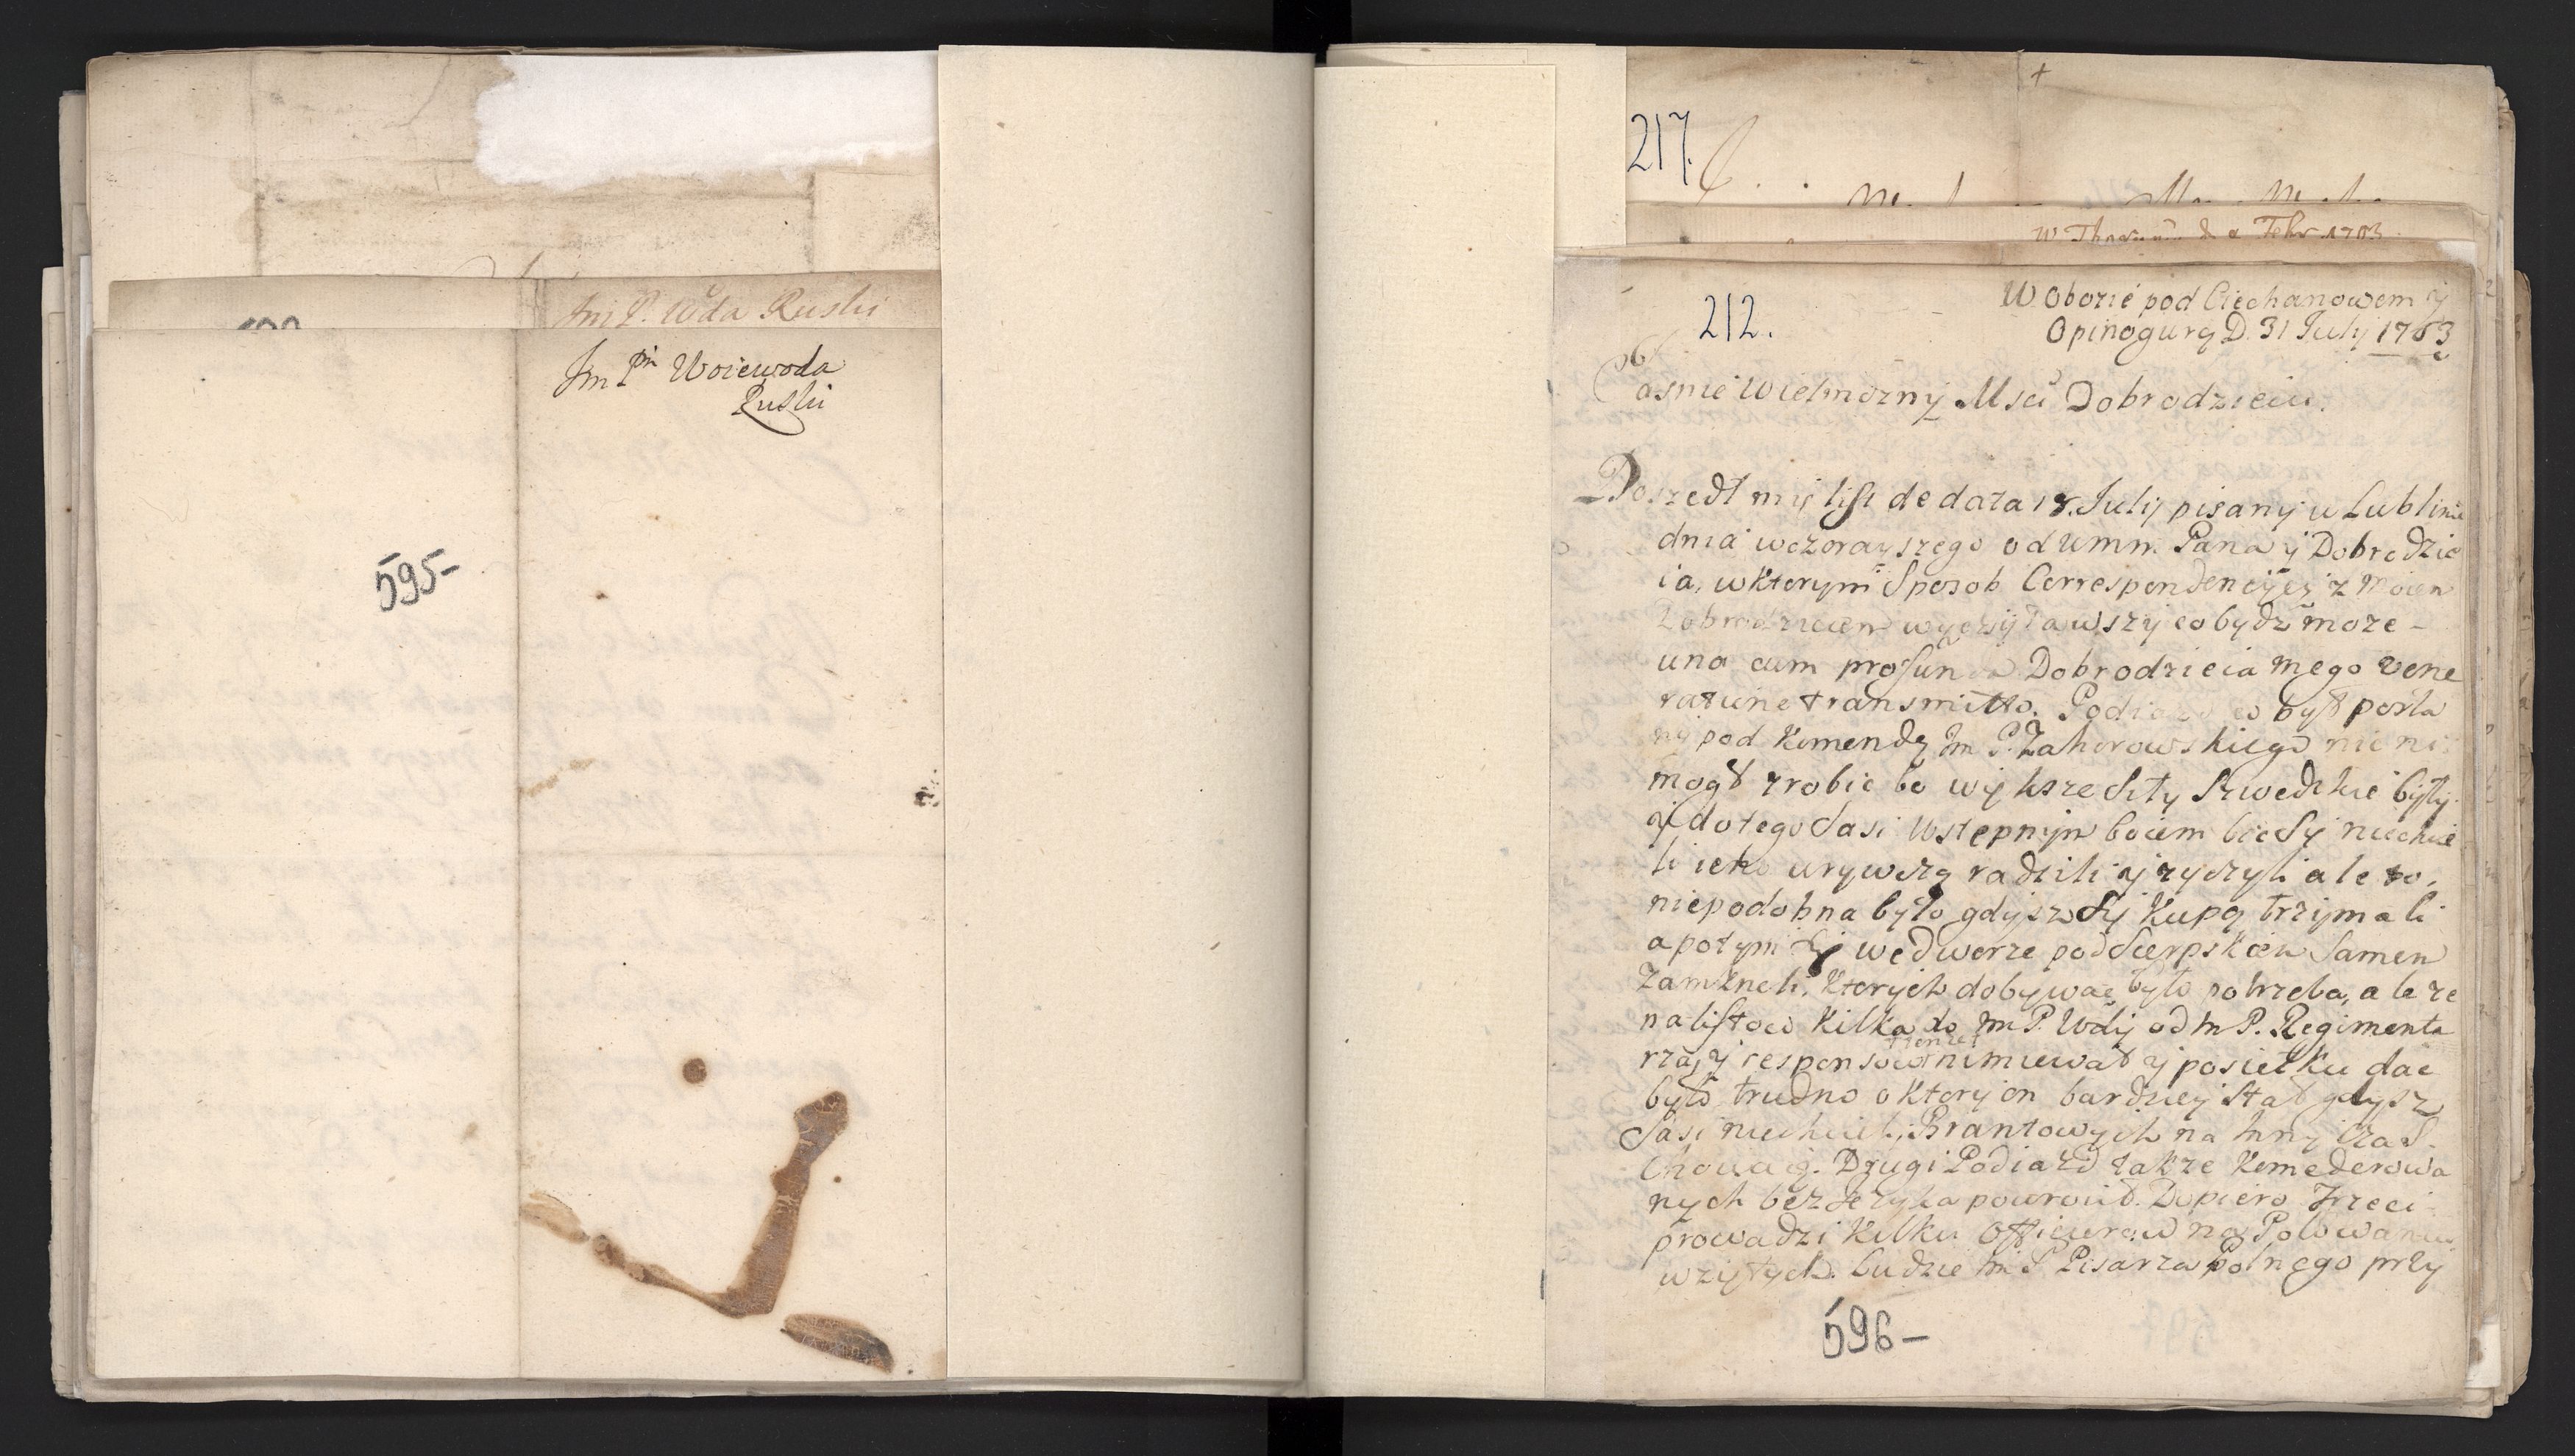 Im P. Wda Ruski
Im Pn Woiewoda
Ruski
595-
217.
W Thoruniu d Febr 1703
212.
W Obozie pod Ciechanowem y
Opinogurą D. 31 July 1703
Jasnie Wielmozny Msci Dobrodzieiu.
Doszedł mię list de data 18. July pisany w Lublinie
dnia wczorayszego od Umm. Pana y Dobrodzie
ia, w ktorym Sposob Correspondencyey z Moiem
Dobrodzieiem wyczytawszy co bydz moze -
una cum profun Dobrodzieia mego vene
ratione transmitto. Podiazd co był posła
ny pod Komendą Im P. Zahorowskiego nic nie
mogł zrobic bo większe siły Szwedzkie były
y do tego Sasi Wstępnym boiem bic sy niechcie
li ieno urywczą radzili y zyczyli ale to,
niepodobna było gdysz sy Kupą trzymali
a potym sy we dworze pod Sierpskiem Samem
Zamkneli, Ktorych dobywac było potrzeba, a le ze
na listow Kilka do Im P. Wdy od Im P. Regimenta
rza, y responsow nimiewał y posiełku dac
było trudno o Ktory on bardziey stał gdysz
Sasi niechcieli, Brantowych na inny Czas
Chowaią. Drugi Podiazd takze Komederowa
nych bez Jezyka powrocił. Dopiero Trzeci
prowadzi Kilku Officierow na Polowaniu
wziętych. Ludzie Im P Pisarza Polnego przy
596-